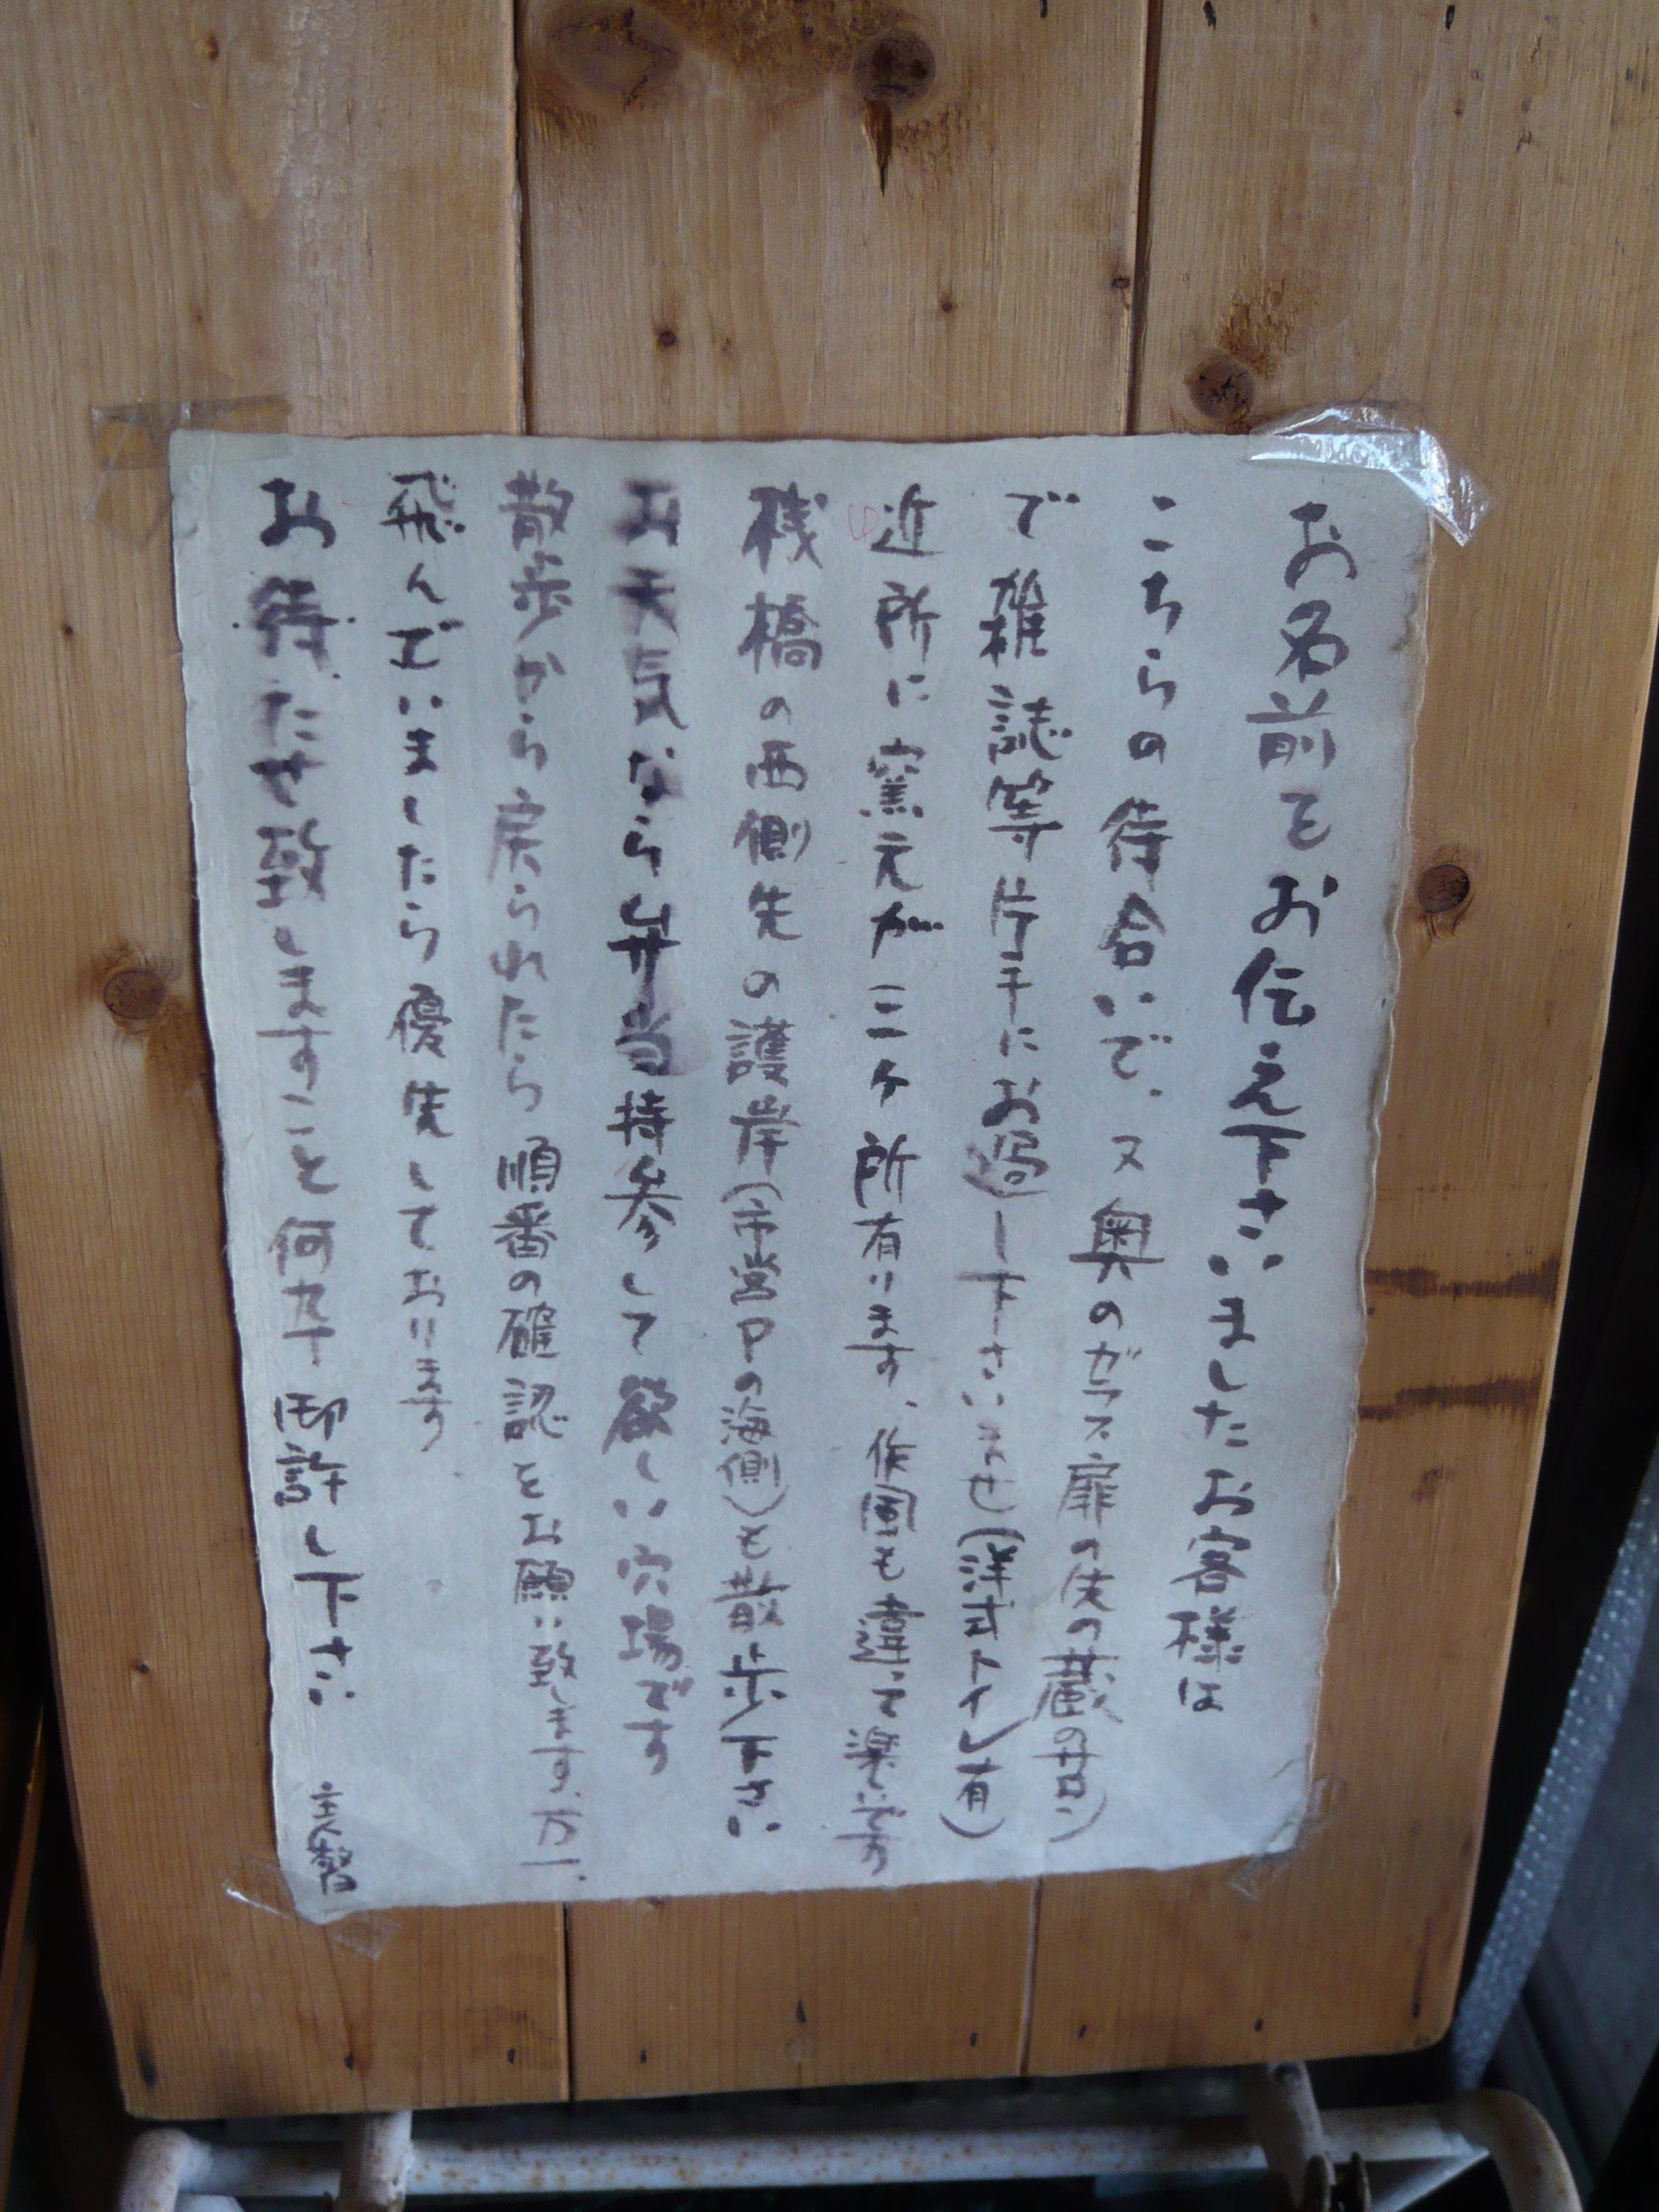 お名前をお伝え下さいましたお客様は
こちらの待合いで、又奥のガラス扉の先の蔵のサロン)
で雑誌等片手にお過し下さいませ(洋式トイレ有)
近所に窯元が三ヶ所有ります、作風も違って楽しいです
桟橋の西側先の護岸(市営Pの海側)も散歩下さい
お天気なら弁当持参して欲しい穴場です
散歩から戻られたら順番の確認をお願い致します、万一、
飛んでいましたら優先しております
お待たせ致しますこと何卒御許し下さい
主人敬白